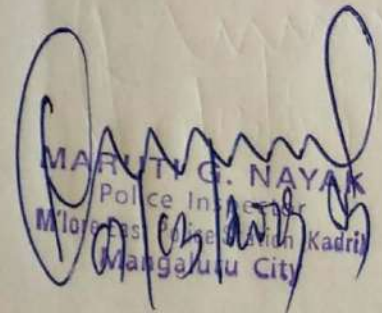 MARUTI G. NAYAK
Police Inspector
M'lore East Police Station (Kadri)
Mangaluru City